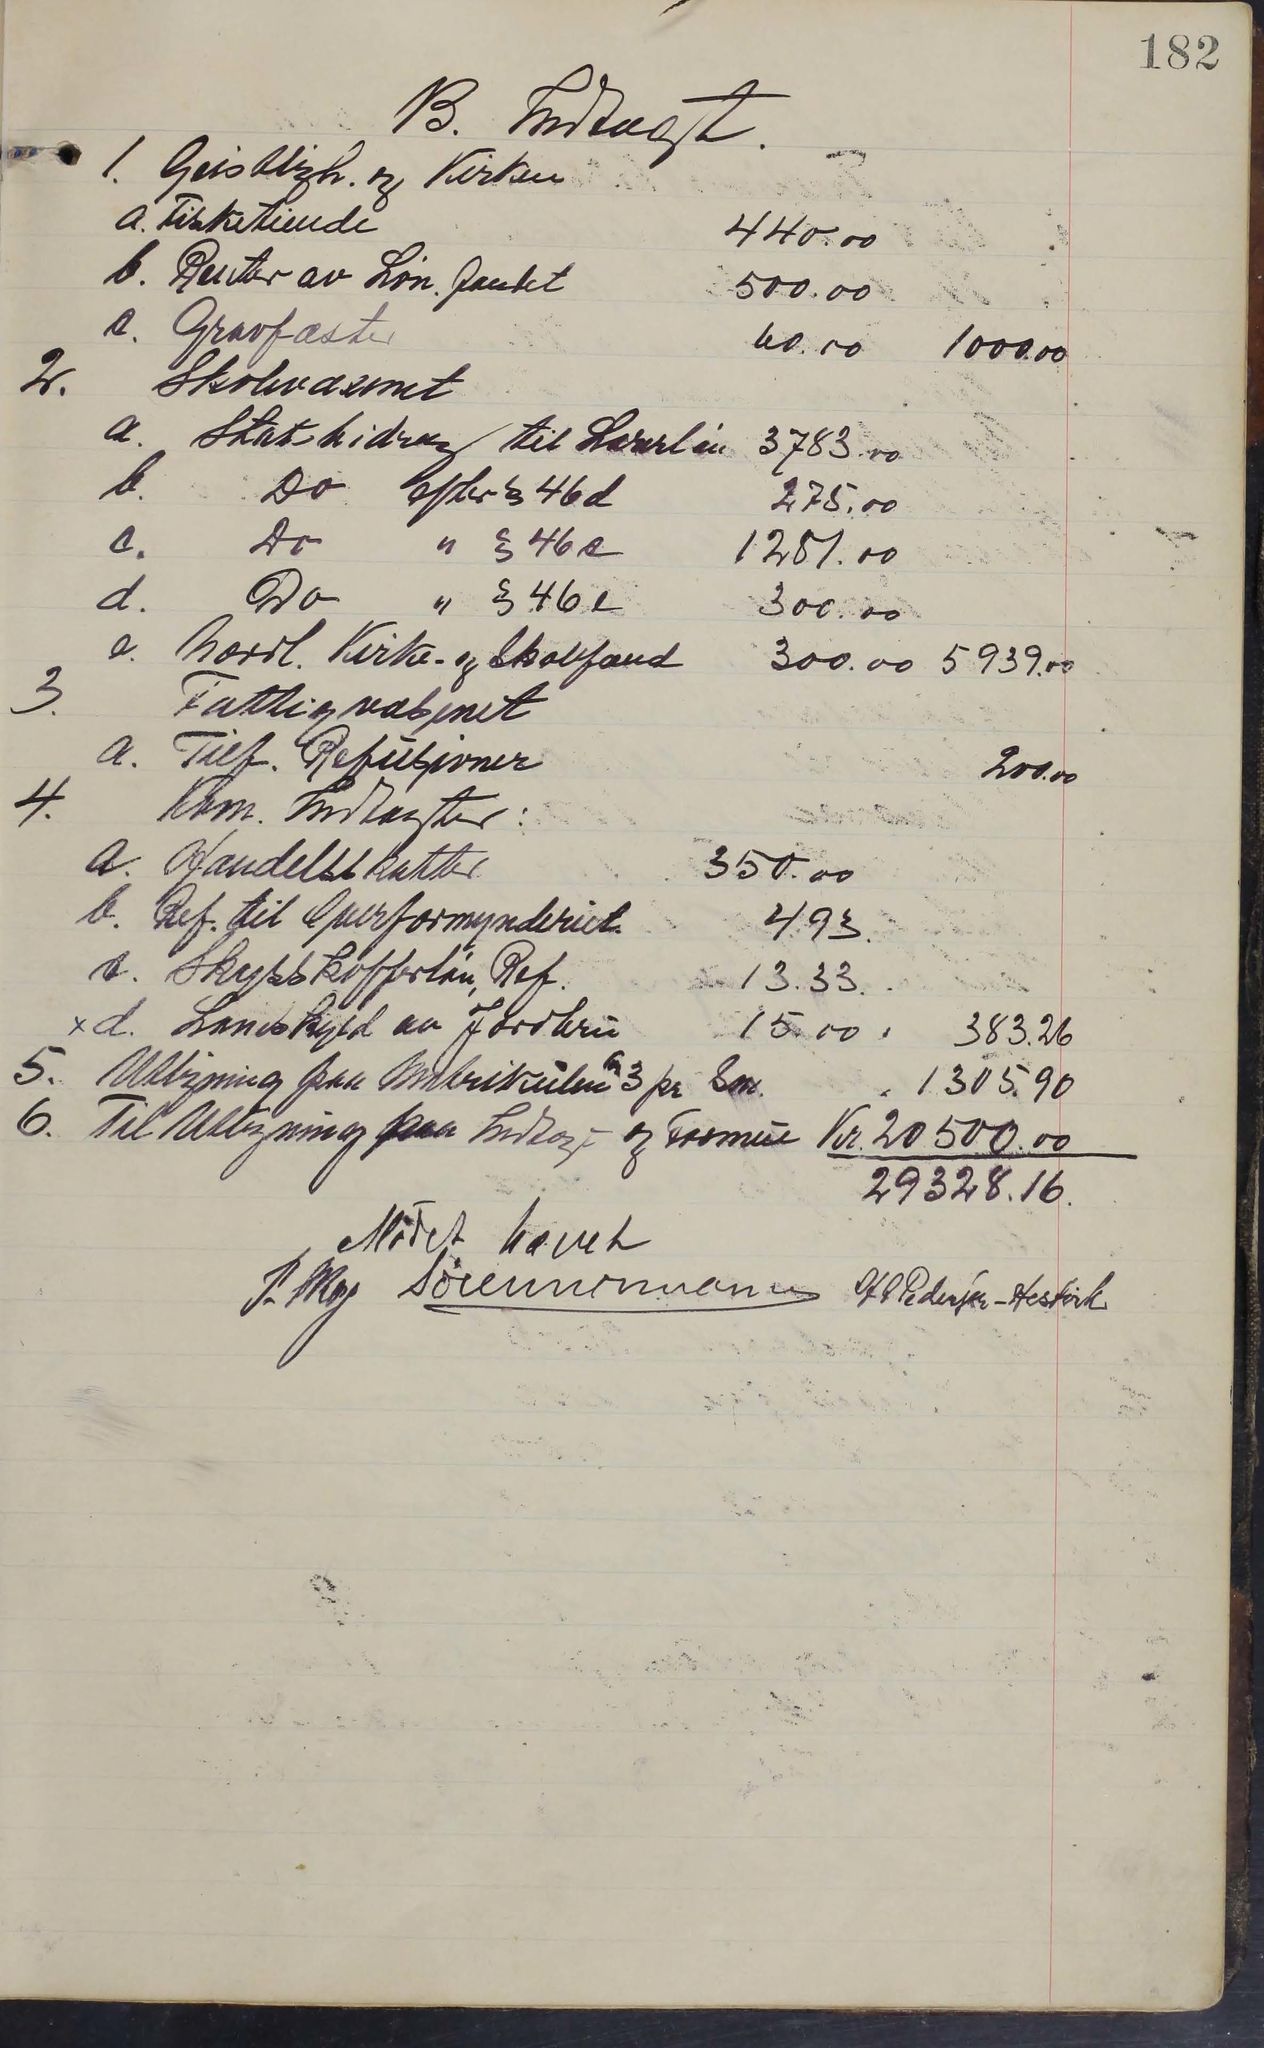 182
B. Indtægt.
1. Geistligh. og Kirken
a. Fisketiende 440.00
b. Renter av Lön. fondet 500.00
c. Gravfæster 60.00 1000.00
2. Skolevæsenet
a. Statsbidrag til Lærerlön 3783.00
b. Do efter § 46 d 275.00
c. Do " § 46 c 1281.00
d. Do " § 46 e 300.00
e. Nordl. Kirke- og Skolefond 300.00 5939.00
3. Fattigvæsenet
a. Tilf. Refusioner 200.00
4. Kom. Indtægter:
a. Handelsskatter 350.00
b. Ref. til Overformynderiet 4.93.
c. Skydsskafferlön, Ref. 13.33.
x d. Landskyld av Jordbru 15.00. 383.26
5. Utligning paa Matrikulen 3 pr Sm. 1305.90
6. Til Utligning paa Indtægt og Formue Kr. 20500.00
29328.16.
Mödet hævet
P. Moe Sörennormann Pedersen-Hestvik